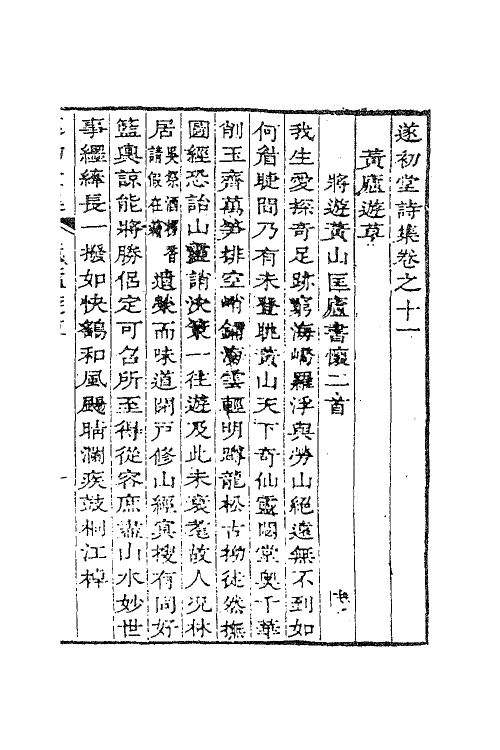 遂初堂詩集卷之十一
黃廬遊草
將遊黃山匡廬書懷二首
我生愛探奇足跡窮海嶠羅浮與勞山絕遠無不到如
何眉睫間乃有未登眺黃山天下奇仙靈閟堂奧千華
削玉齊萬笋排空峭鋪海雲輕明蹲龍松古拗徒然撫
圖經恐詒山靈誚決策一往遊及此未衰耄故人況休
居吳祭酒請假在遺榮而味道閉戶修山經冥搜有同好
籃輿諒能將勝侶定可召所至得從容庶盡山水妙世
事纆縴長一撥如快鶴和風颺晴瀾疾鼓桐江棹